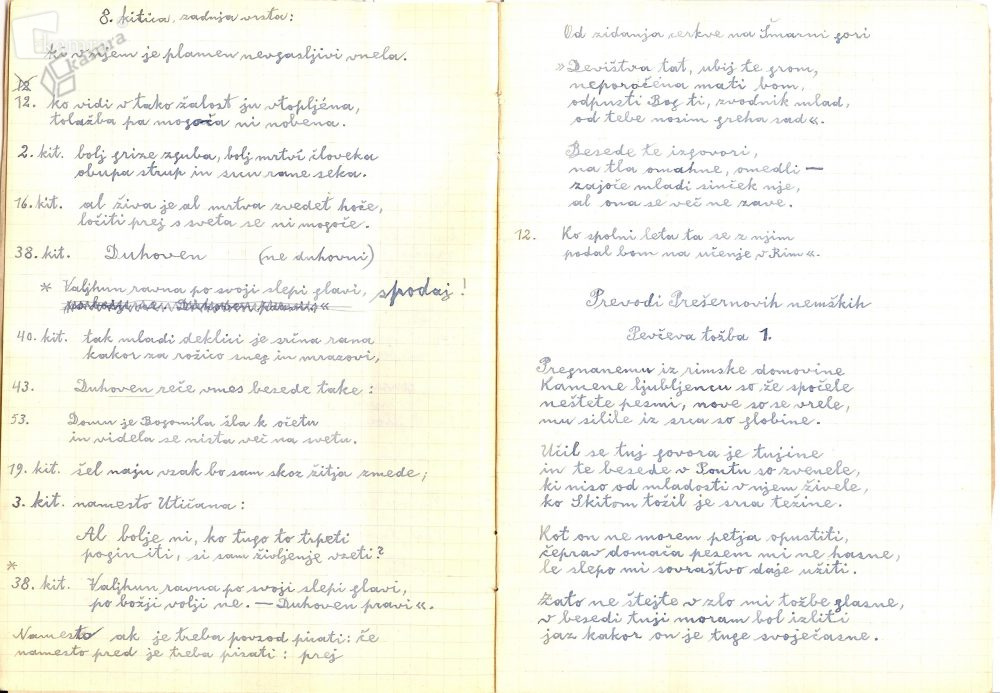 8. kitica, zadnja vrsta:
ki v njem je plamen neugasljivi vnela.
12
12. ko vidi v tako žalost ju vtopljéna,
tolažba pa mogoča ni nobena.
2. kit. bolj grize zguba, bolj mrtví človeka
obupa strup in srcu rane seka.
16. kit. al živa je al mrtva zvedet hoče,
ločiti prej s sveta se ni mogoče.
38. kit. Duhoven (ne duhovni)
* Valjhun ravna po svoji slepi glavi, spodaj!
40. kit. tak mladi deklici je srčna rana
kakor za rožico sneg in mrazovi,
43. Duhoven reče vmes besede take:
53. Domu je Bogomila šla k očetu
in videla se nista več na svetu.
19. kit. šel naju vsak bo sam skoz žitja zmede;
3. kit. namesto Utičana:
Al bolje ni, ko tugo to trpeti
poginiti, si sam življenje vzeti?
*
38. kit. Valjhun ravna po svoji slepi glavi,
po božji volji ne. — Duhoven pravi«.
Namesto ak je treba povsod pisati: če
namesto pred je treba pisati: prej
Od zidanja cerkve na Šmarni gori
»Devištva tat, ubij te grom,
neporočena mati bom,
odpusti Bog ti, zvodnik mlad,
od tebe nosim greha sad«.
Besede te izgovori,
na tla omahne, omedli —
zajoče mladi sinček nje,
al ona se več ne zave.
12. Ko spolni leta ta se z njim
podal bom na učenje v Rim«.
Prevodi Prešernovih nemških
Pevčeva tožba 1.
Pregnanemu iz rimske domovine
Kamene ljubljencu so že spočele
neštete pesmi, nove so se vrele,
mu silile iz srca so globine.
Učil se tuj govora je tujine
in te besede v Pontu so zvenele,
ki niso od mladosti v njem živele,
ko Skitom tožil je srca težine.
Kot on ne morem petja opustiti,
čeprav domača pesem mi ne hasne,
le slepo mi sovraštvo daje užiti.
Zato ne štejte v zlo mi tožbe glasne,
v besedi tuji moram bol izliti
jaz kakor on je tuge svoječasne.